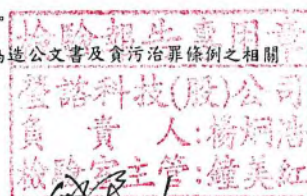 檢驗報告專用章
偽造公文書及貪污治罪條例之相關
澄諾科技(股)公司
負責人:楊炯
檢驗室主管:鐘美